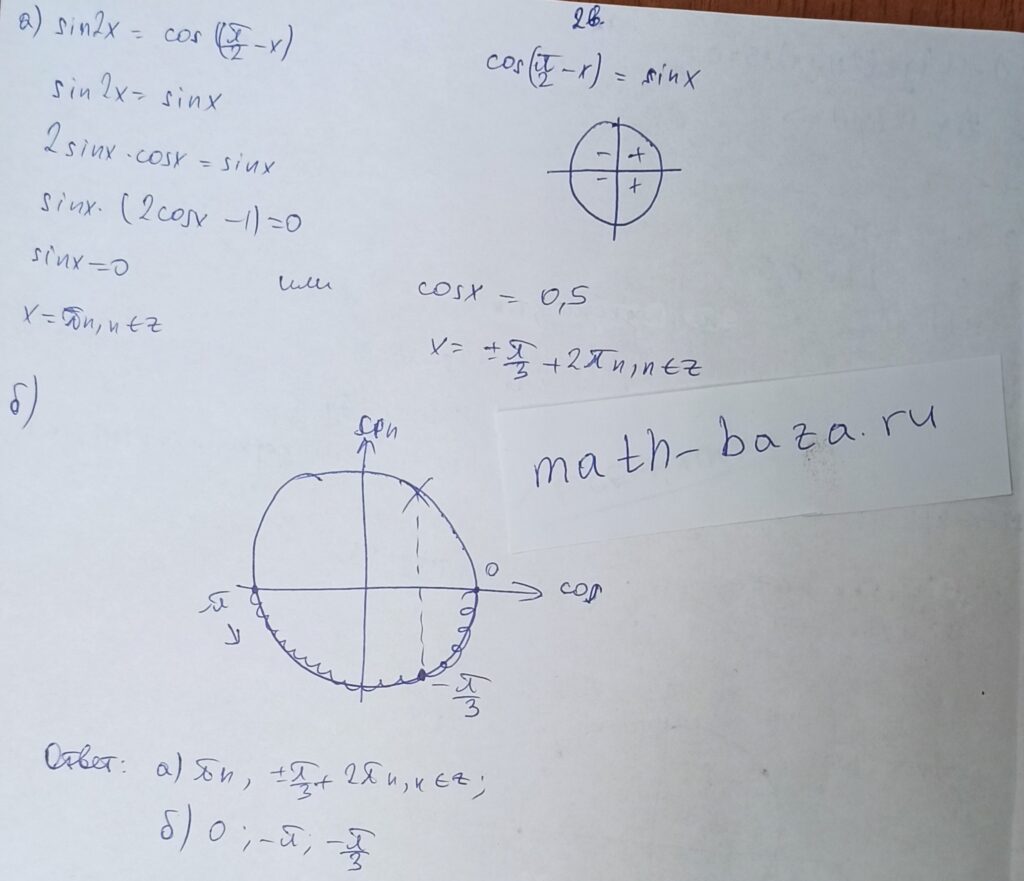 2б.
а) sin2x = cos (π/2 - x)
cos(π/2 - x) = sinx
sin2x = sinx
2sinx · cosx = sinx
- +
- +
sinx · (2cosx - 1) = 0
sinx = 0 или cosx = 0,5
x = πn, n ∈ z
x = ± π/3 + 2πn, n ∈ z
б)
math-baza.ru
sin
0
cos
π
-π/3
Ответ: а) πn, ± π/3 + 2πn, n ∈ z;
б) 0; -π; -π/3